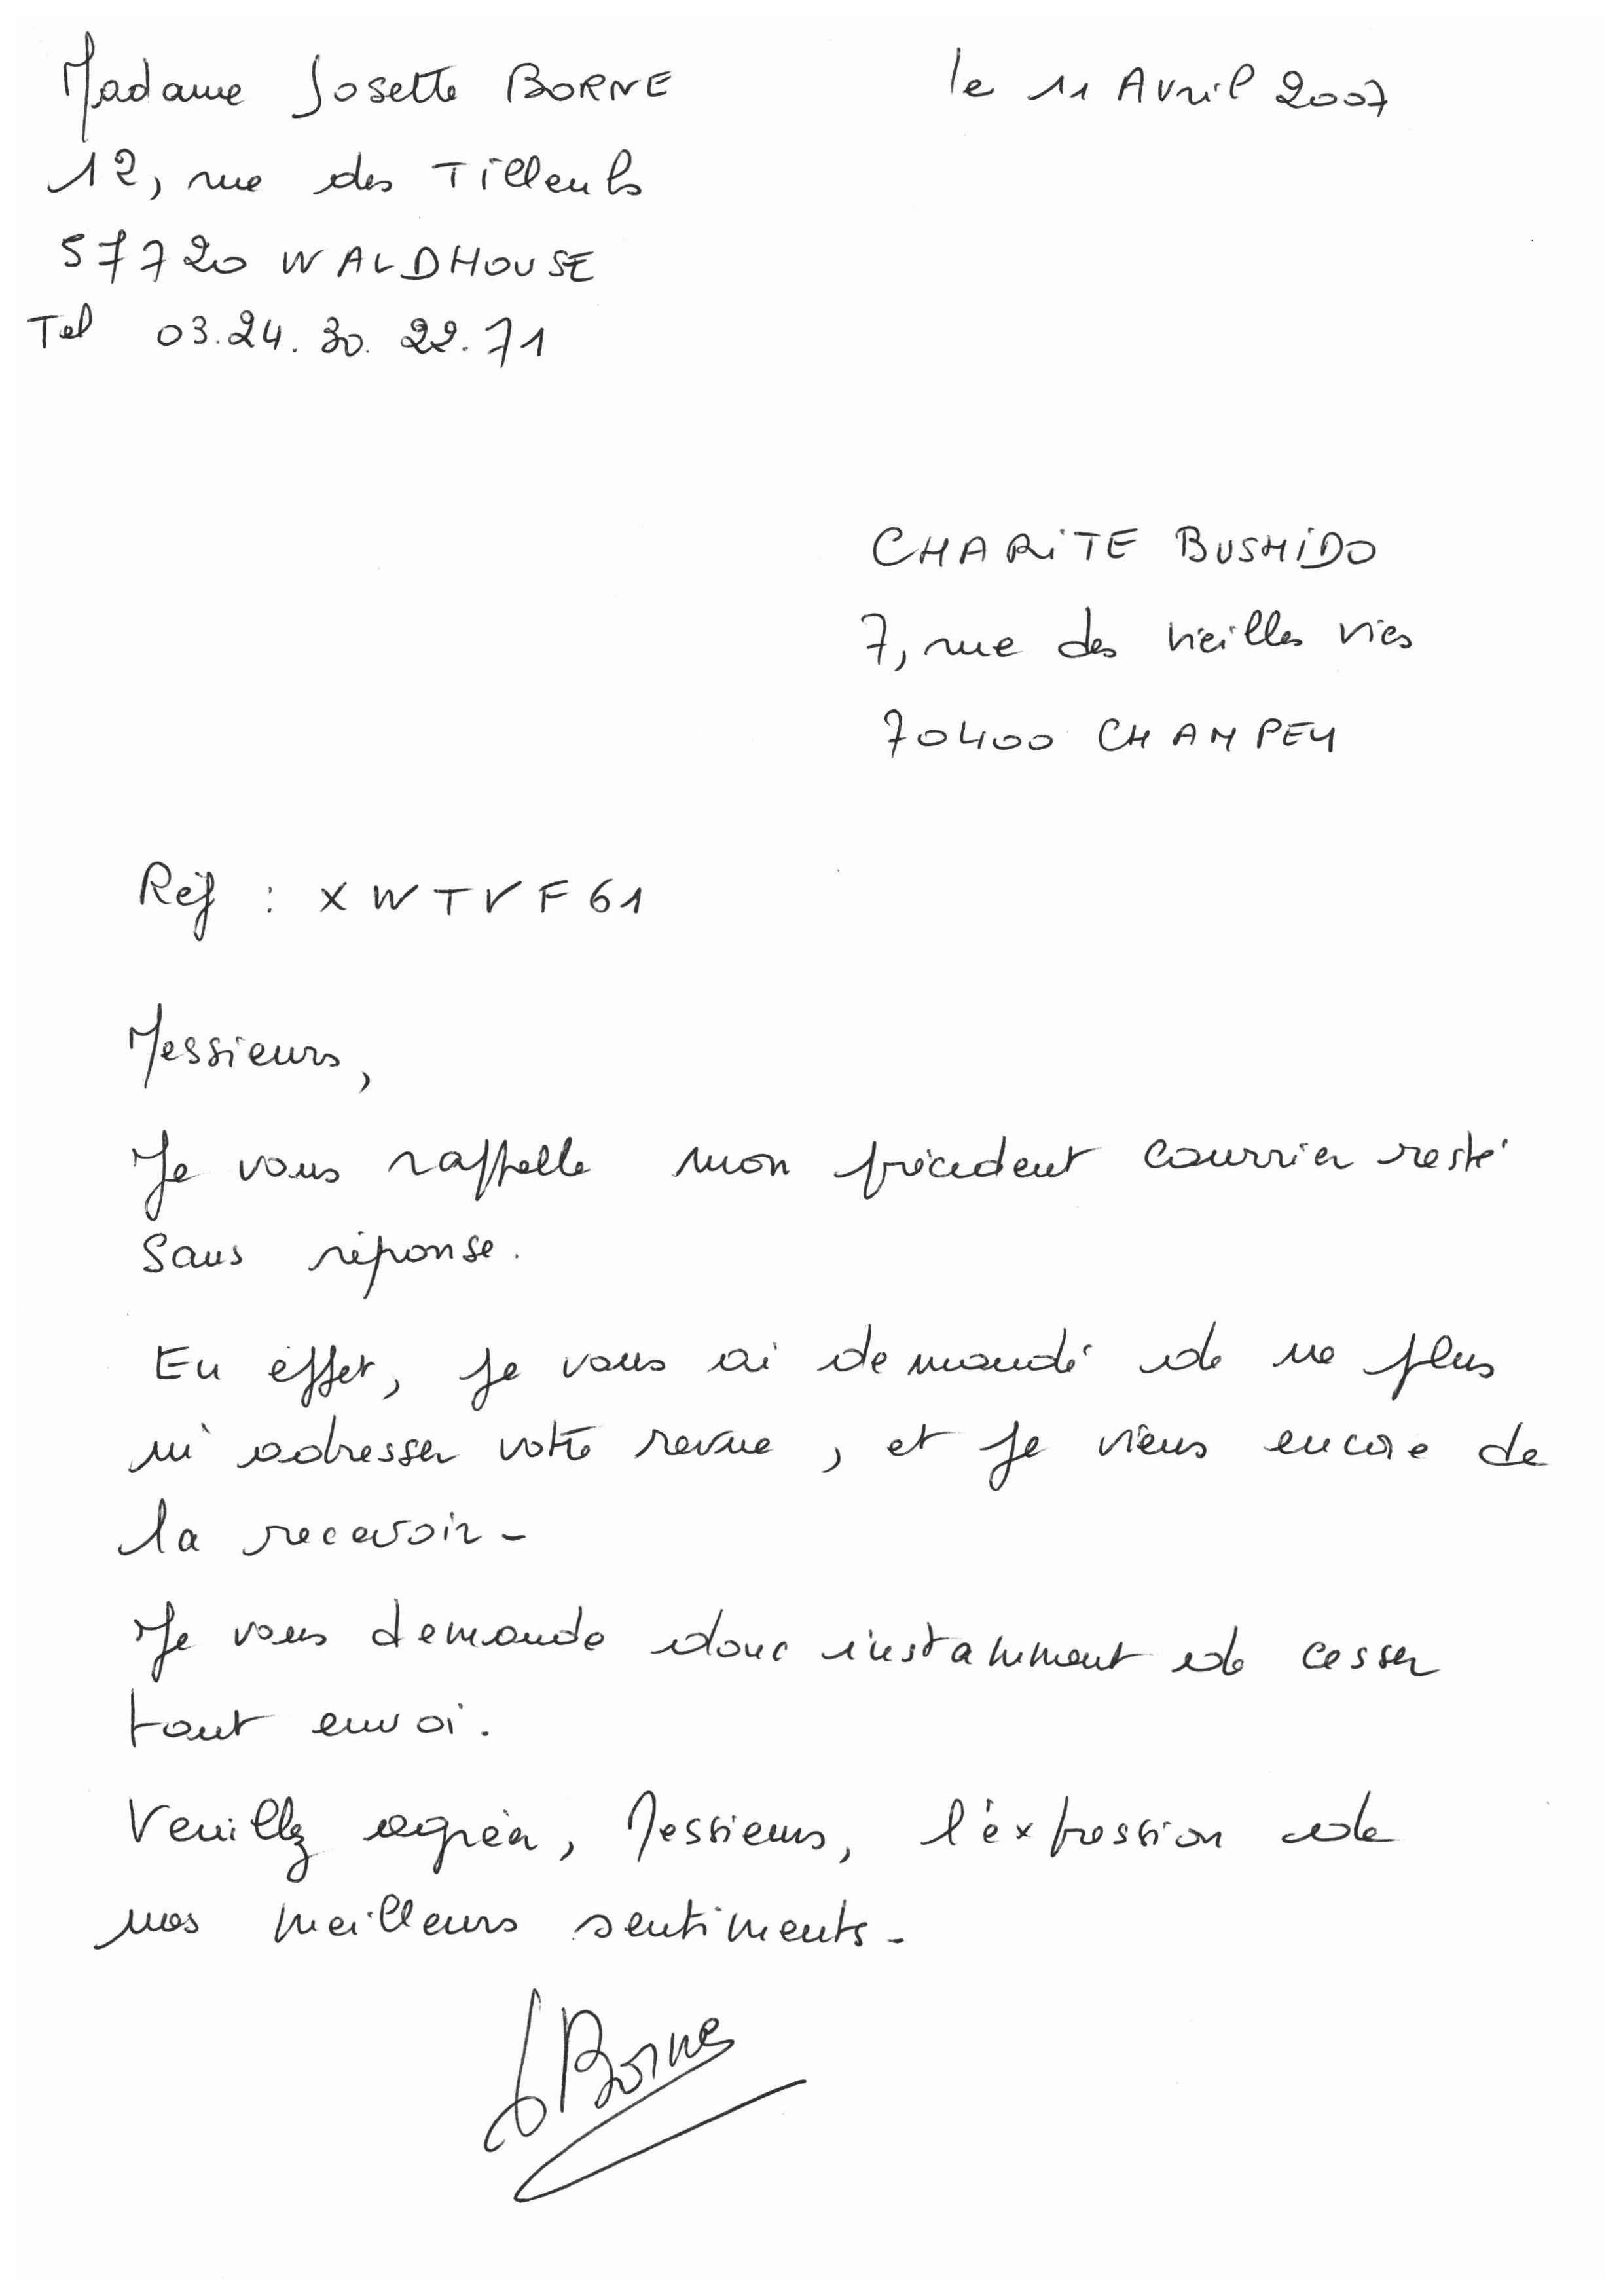 Madame Josette BORNE
le 11 Avril 2007
12, rue des Tilleuls
57720 WALDHOUSE
Tel 03.24.30.22.71
CHARITE BUSHIDO
7, rue des vieilles vies
70400 CHAMPEY
Réf : XWTVF61
Messieurs,
Je vous rappelle mon précedent courrier resté
sans réponse.
En éffet, je vous ai demandé de ne plus
m'adresser votre revue, et je viens encore de
la recevoir-
Je vous demande donc instamment de cesser
tout envoi.
Veuillez agréer, Messieurs, l'éxpression de
mes meilleurs sentiments-
JBorne